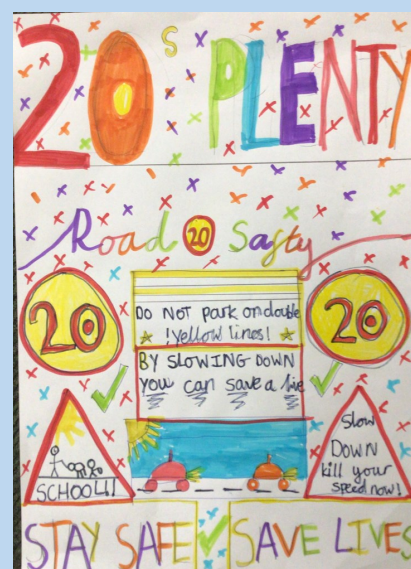 20s PLENTY
Road 20 Safty
20
20
DO NOT park on double
!yellow lines!
BY SLOWING DOWN
you can save a live
SCHOOL!!
Slow
DOWN
kill your
speed now!
STAY SAFE SAVE LIVES